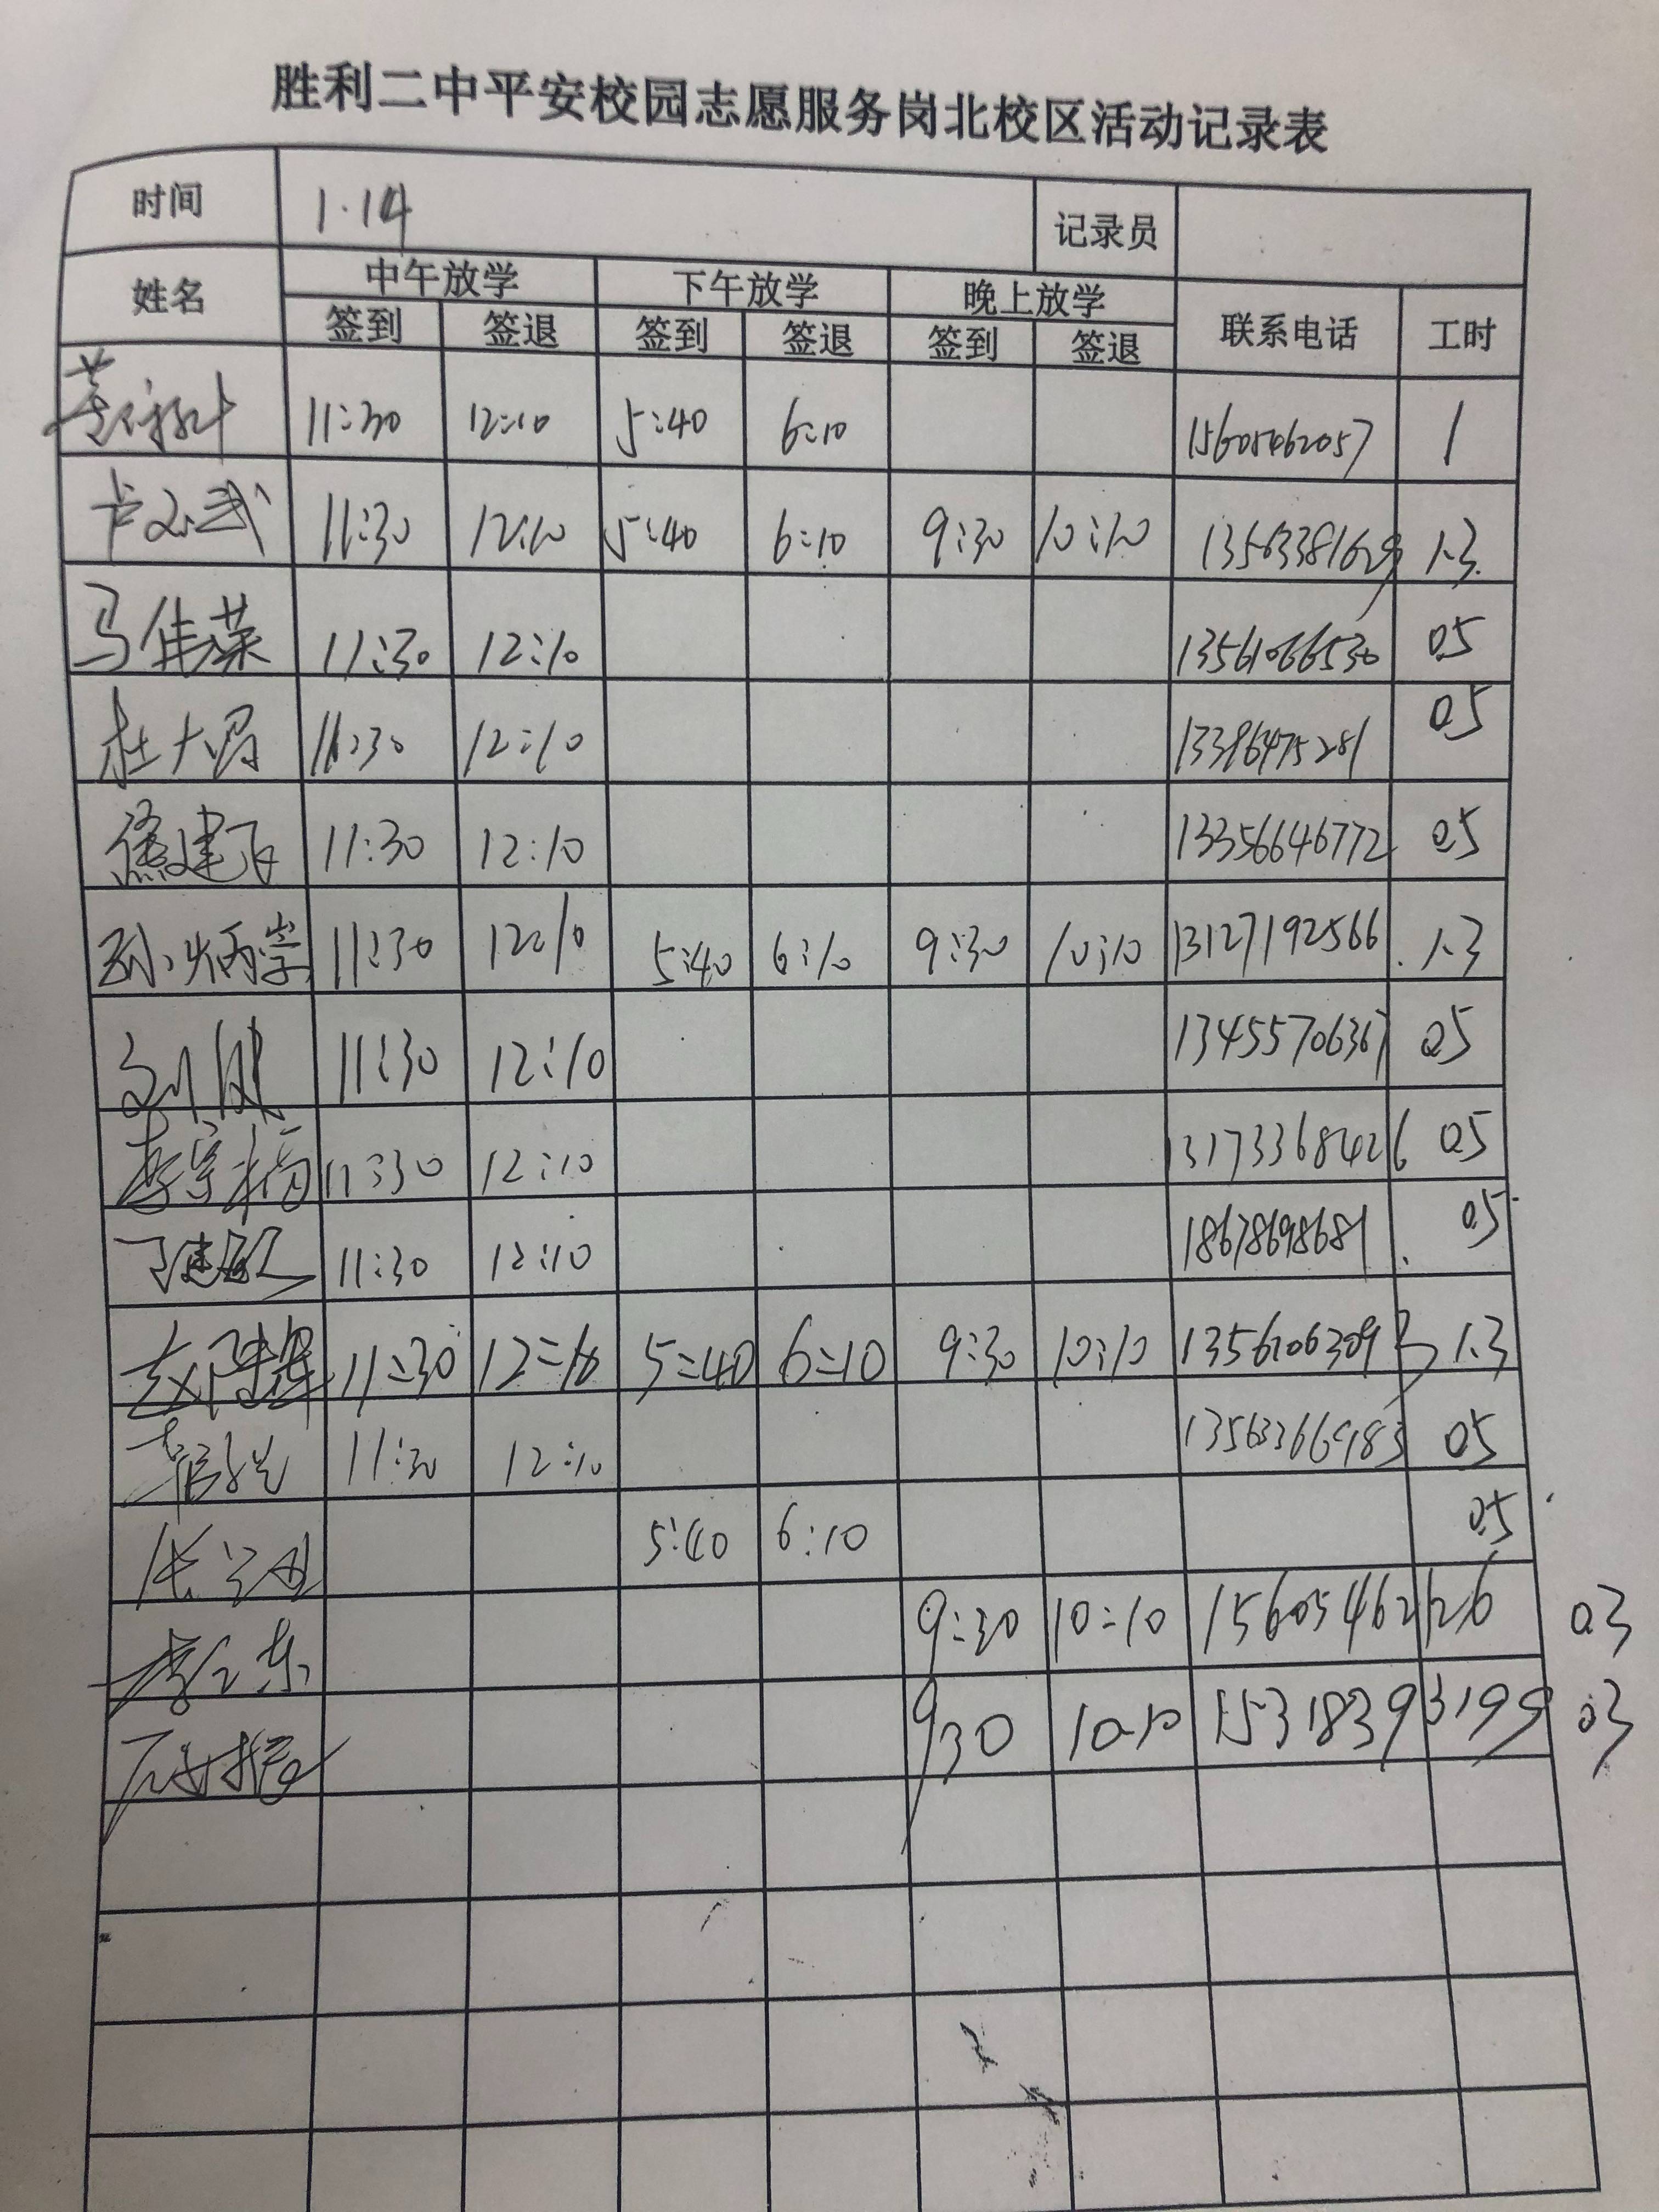 胜利二中平安校园志愿服务岗北校区活动记录表
时间 1.14 记录员
姓名 中午放学 下午放学 晚上放学 联系电话 工时
签到 签退 签到 签退 签到 签退
11:30 12:10 5:40 6:10 15605462057 1
11:30 12:10 5:40 6:10 9:30 10:10 1.3
马佳荣 11:30 12:10 13561066530 0.5
杜大冯 11:30 12:10 0.5
建飞 11:30 12:10 13356646772 0.5
孙炳崇 11:30 12:10 5:40 6:10 9:30 10:10 13127192566 1.3
刘健 11:30 12:10 13455706367 0.5
李宗梅 11:30 12:10 13173368426 0.5
11:30 12:10 18678698681 0.5
11:30 12:10 5:40 6:10 9:30 10:10 13561063093 1.3
11:30 12:10 0.5
5:40 6:10 0.5
9:30 10:10 15605462126 0.3
930 10-10 15318393199 0.3